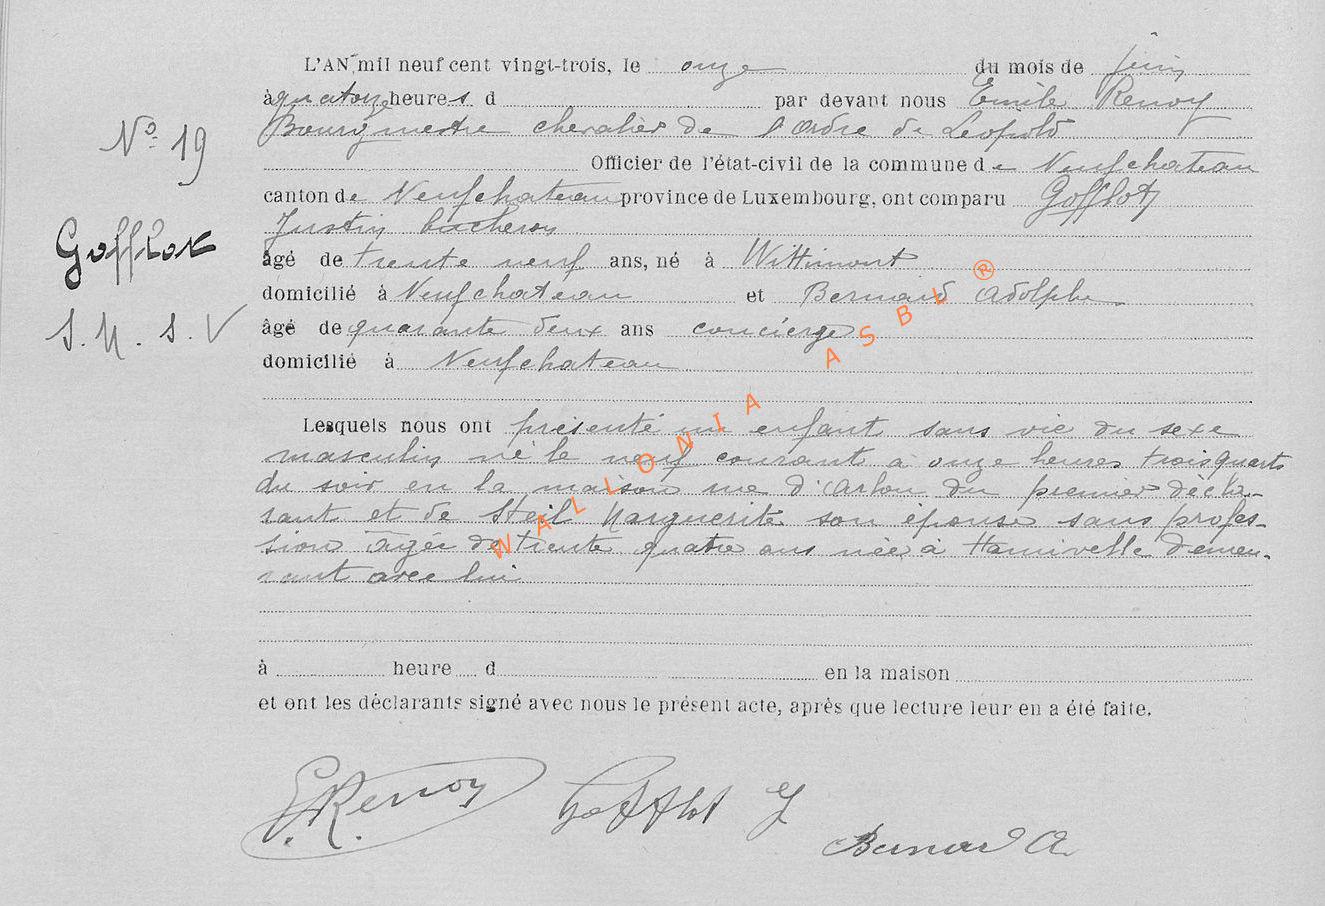 L'AN mil neuf cent vingt-trois, le onze du mois de juin
à quatorze heures d par devant nous Emile Renoy
Bourgmestre chevalier de l'Ordre de Léopold
Officier de l'état-civil de la commune de Neufchateau
N° 19
canton de Neufchateau province de Luxembourg, ont comparu Gofflot
Justin bucheron
Gofflot
âgé de trente neuf ans, né à Wittimont
domicilié à Neufchateau et Bernard Adolphe
S. N. S. V
âgé de quarante deux ans concierge
domicilié à Neufchateau
Lesquels nous ont présenté un enfant sans vie du sexe
masculin né le neuf courant à onze heures trois quarts
du soir en la maison rue d'Arlon du premier décla-
rant et de Steil Marguerite son épouse sans profes-
sion âgée de trente quatre ans née à Hamivelle demeu-
rant avec lui
à heure d en la maison
et ont les déclarants signé avec nous le présent acte, après que lecture leur en a été faite.
E. Renoy Gofflot J
Bernard A.
WALLONIA ASBL ®